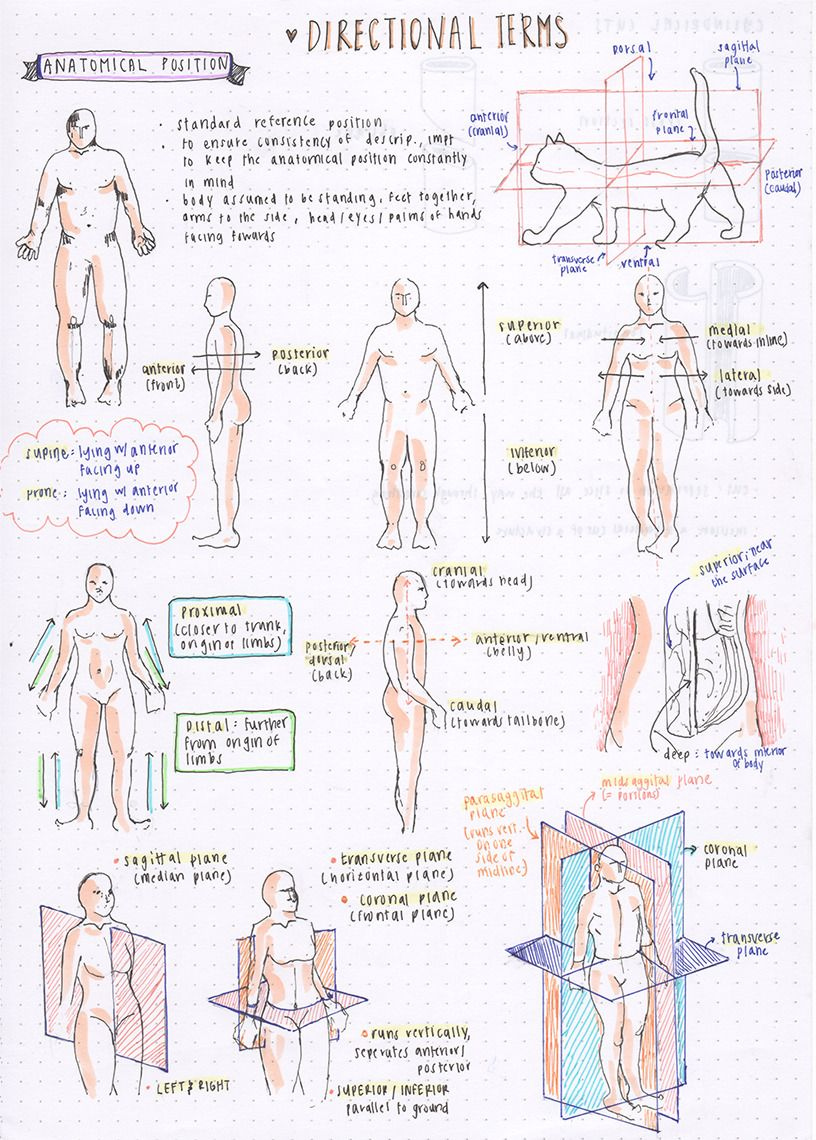 ♥ DIRECTIONAL TERMS
ANATOMICAL POSITION
· standard reference position
· to ensure consistency of descrip., impt
to keep the anatomical position constantly
in mind
· body assumed to be standing, feet together,
arms to the side, head/eyes/palms of hands
facing towards
dorsal
sagittal
plane
anterior
(cranial)
frontal
plane
posterior
(caudal)
transverse
plane
ventral
anterior
(front)
posterior
(back)
superior
(above)
inferior
(below)
medial
(towards inline)
lateral
(towards side)
supine = lying w/ anterior
facing up
prone : lying w/ anterior
facing down
proximal
(closer to trunk,
origin of limbs)
Distal : further
from origin of
limbs
cranial
(towards head)
posterior/
dorsal
(back)
anterior/ventral
(belly)
caudal
(towards tailbone)
superior; near
the surface
deep : towards interior
of body
parasaggital
plane
(runs vert.
on one
side of
midline)
midsaggital plane
(= portions)
coronal
plane
transverse
plane
• sagittal plane
(median plane)
• LEFT & RIGHT
• transverse plane
(horizontal plane)
• coronal plane
(frontal plane)
• runs vertically,
seperates anterior/
posterior
• SUPERIOR / INFERIOR
parallel to ground